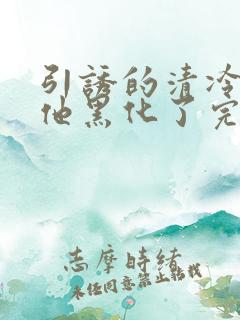 引誘的清冷
他黑化了完
志摩時緒
未经同意禁止转载